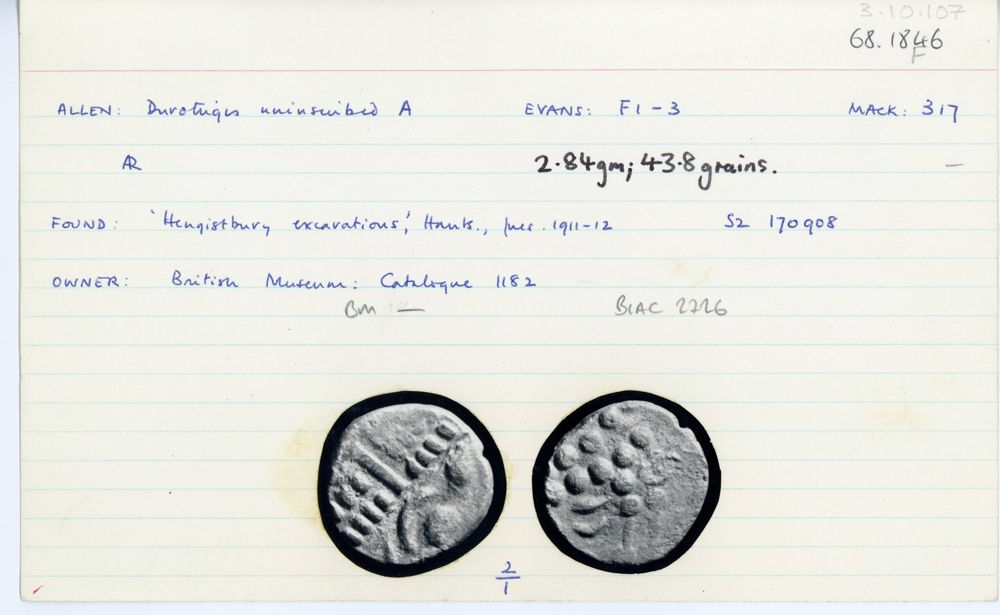 3.10.107
68.1846
F
ALLEN: Durotriges uninscribed A EVANS: F1-3 MACK: 317
AR 2.84gm; 43.8 grains. —
FOUND: 'Hengistbury excavations', Hants., pres. 1911-12 SZ 170908
OWNER: British Museum: Catalogue 1182
BM — BIAC 2726
2
1